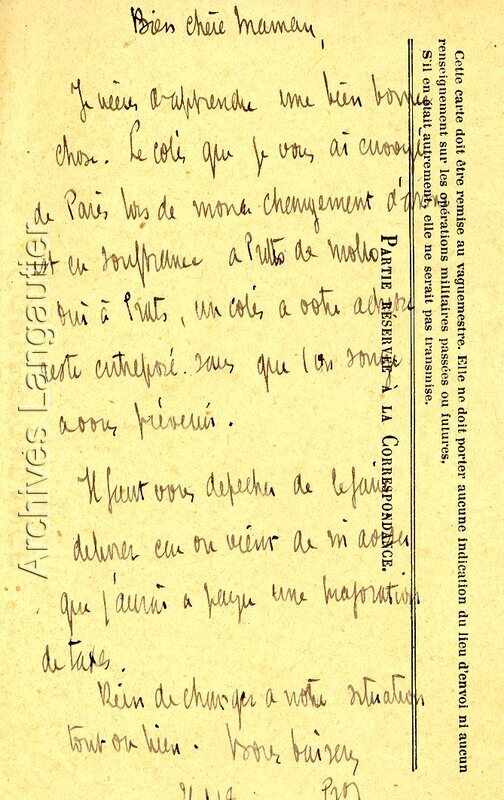 Bien chère Maman,
Je viens d'apprendre une bien bonne
chose. Le colis que je vous ai envoyé
de Paris lors de mon changement d'arme
est en souffrance a Prats de mollo
oui à Prats, un colis a votre adresse
reste entreposé. sans que l'on songe
a vous prévenir.
Il faut vous depecher de le faire
delivrer car on vient de m'aviser
que j'aurai a payer une majoration
de taxes.
Rien de changer a notre situation
tout va bien. Bons baisers
PARTIE RÉSERVÉE À LA CORRESPONDANCE.
Cette carte doit être remise au vaguemestre. Elle ne doit porter aucune indication du lieu d'envoi ni aucun
renseignement sur les opérations militaires passées ou futures.
S'il en était autrement, elle ne serait pas transmise.
Archives Langautier